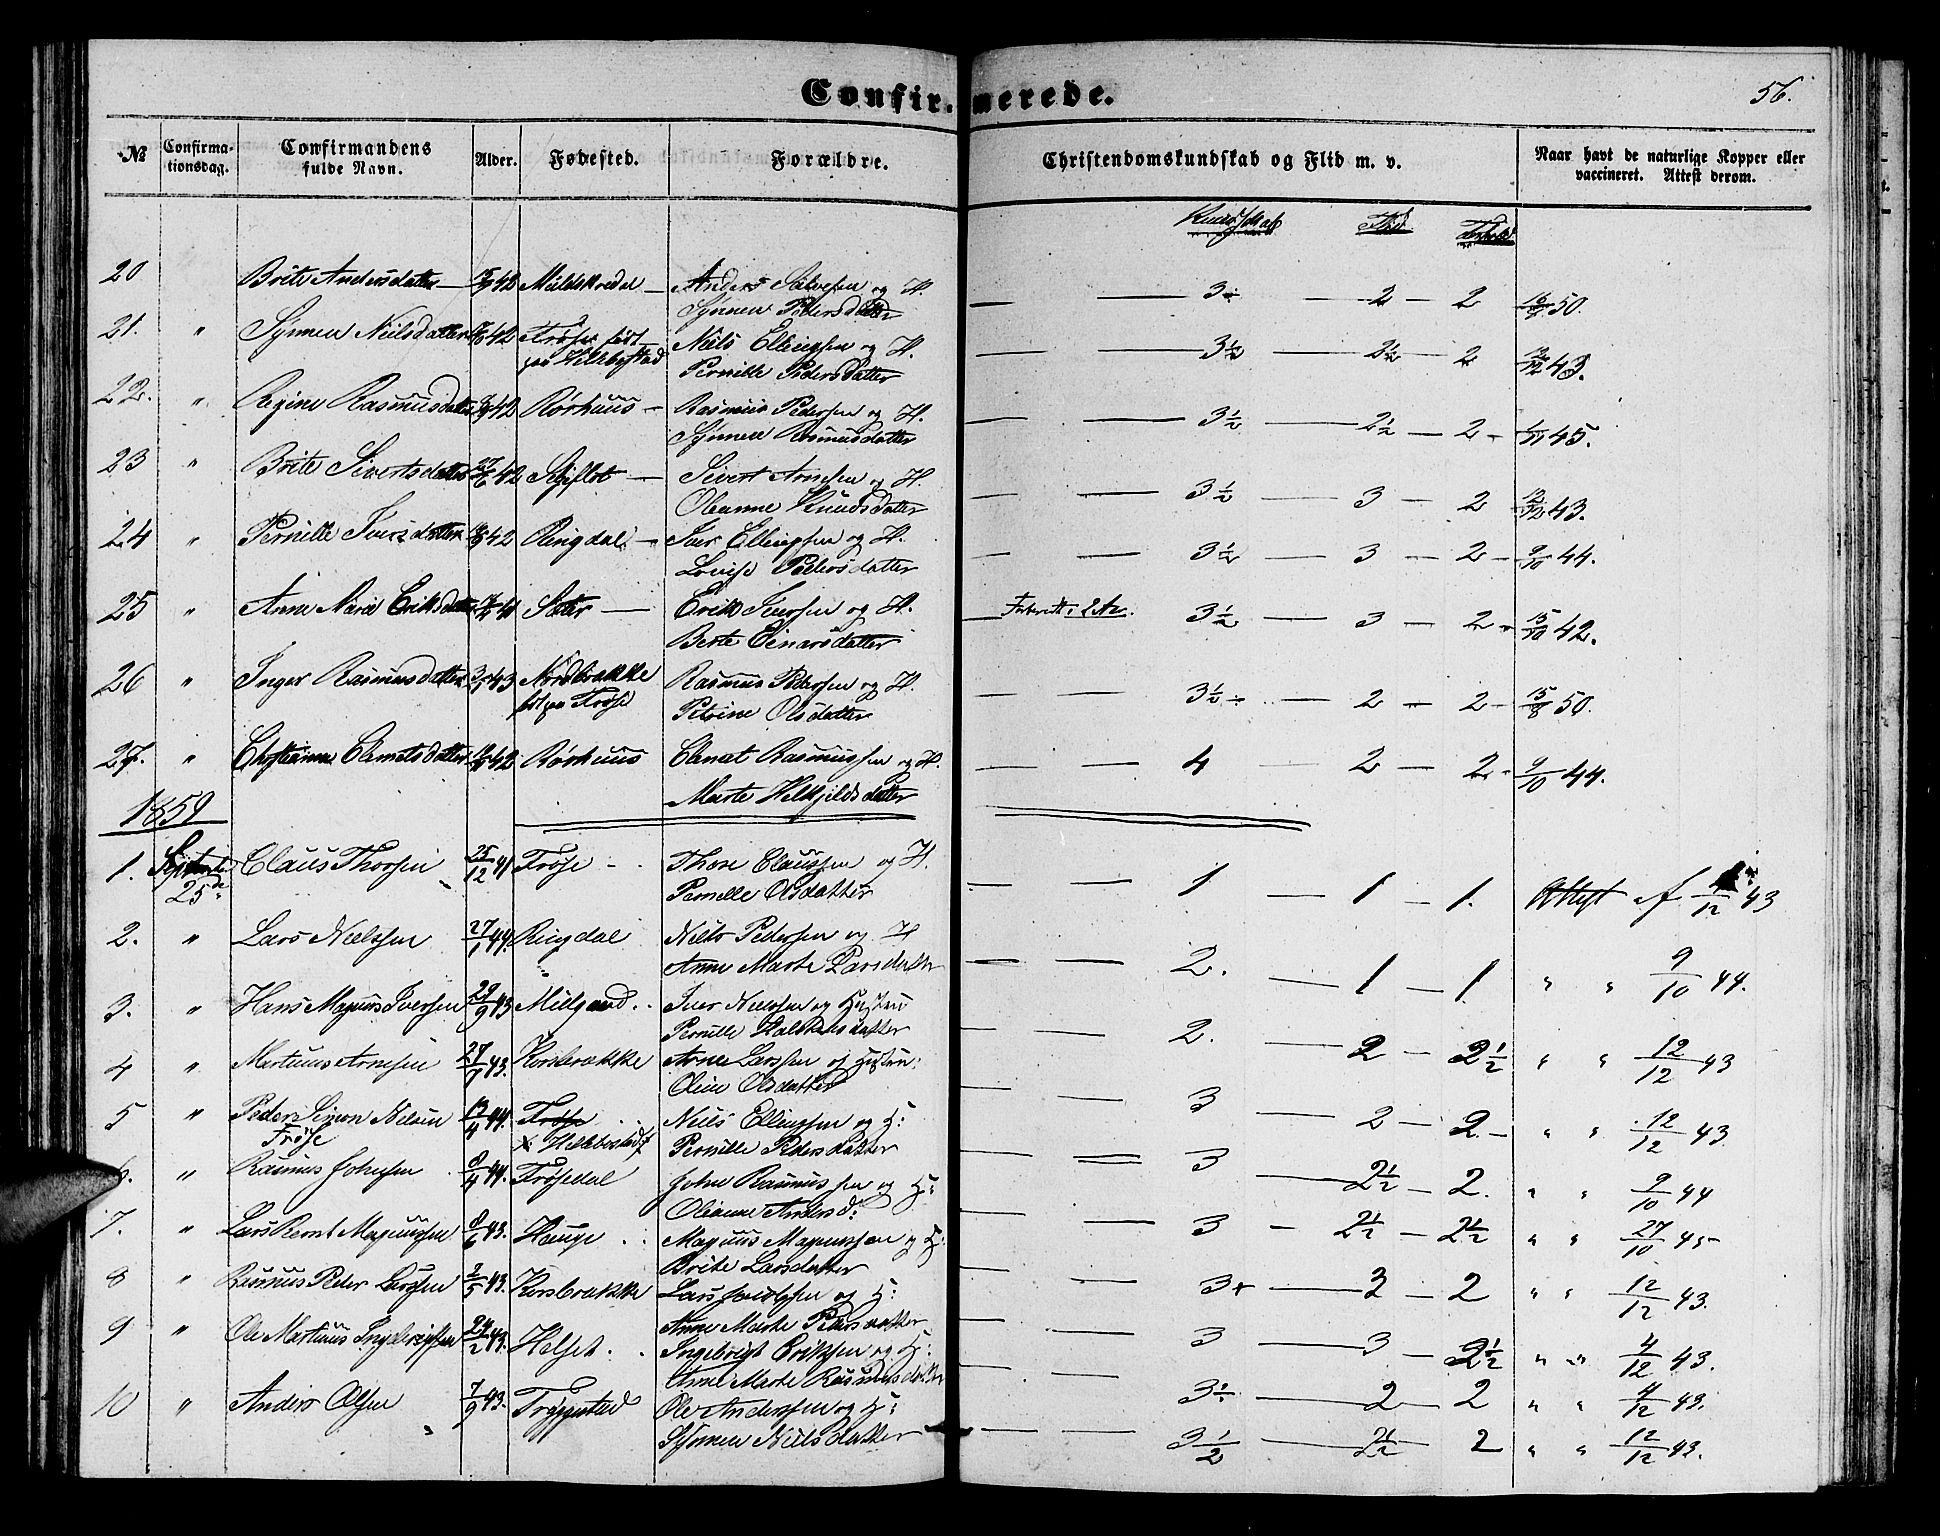 Confirmerede.
56.
№ Confirma-tionsdag. Confirmandens fulde Navn. Alder. Fødested. Forældre. Christendomskundskab og Flid m. v. Naar havt de naturlige Kopper eller vaccineret. Attest derom.
Kundskab Flid Forhold
20 Brite Andersdatter 42 Anders og H. — — 3 — 2 — 2 50.
Synnev Pedersdatter
21. " Synnev Nielsdatter 42 Frøse født Niels Ellingsen og H. — — 3½ — 2½ — 2 12/12 43.
paa Hellebostad Pernille Pedersdatter
22. " Regine Rasmusdatter 42 Rørhuus — Rasmus Pedersen og H. — — 3½ — 2½ — 2 - 45.
Synneve Rasmusdatter
23 " Brite Sivertsdatter 42 — Sivert Arnesen og H. — — 3½ — 3 — 2 12/12 43.
Oleanne Knudsdatter
24 " Pernille Iversdatter 42 Ringdal — Iver Ellingsen og H. — — 3½ — 3 — 2 - 9/10 44.
Lovise Pedersdatter
25 " Anne Marie Eriksdatter 41 Sæter — Erik Iversen og H. — 3½ — 3 — 2 - 15/10 42.
Berte Einarsdatter
26 " Inger Rasmusdatter 43 Nordbrække Rasmus Pedersen og H. — — 3½ — 2 — 2 - 15/8 50.
født paa Frøse Petrine Olsdatter
27. " Clemetsdatter 42 Rørhuus Clemet Rasmussen og H. — — 4 — 2 — 2 - 9/10 44.
Marte
1859
1. September Claus Thorsen 25/12 41 Frøse - - Thore Claussen og H. — — 1 — 1 — 1. Attest af 12 43
25de Pernille Olsdatter
2. " Lars Nielssen 27/1 44. Ringdal Niels Pedersen og H — — 2. — 1 — 1. " " 9/10 44.
Anne Marte Larsdatter
3. " Hans Magnus Iversen 29/9 43 Melgaard . . Iver Nielssen og Hustru — — 2. — 2 — 2½ " " 12/12 43
Pernille
4 " Martinus Arnesen 27/9 43. Korsbrække Arne Larssen og Hustru: — — 3 — 2 — 2. — " " 12/12 43.
Oline Olsdatter
5 " Peder Simon Nilsen 13/4 44. Frøse Niels Ellingsen og H: — — 3 — 2½ — 2. " " 9/10 44
Frøse x Hellebostad Pernille Pedersdatter
6. " Rasmus Johnsen 8/4 44. Frøsedal John Rasmussen og H: — — 3 - 2½ — 2½ " " 27/10 45
Oleanne Andersd:
7. " Lars Bernt Magnussen 8/6 43. Hauge . . Magnus Magnussen og H: — — 3 — 3 — 2 " " 12/12 43.
Brite Larsdatter
8 " Rasmus Peder Larssen 2/5 43. Korsbrække Lars og H: — — 3 — 3 — 2½ " " 4/12 43.
Anne Marte Pedersdatter
9 " Ole Martinus Ingebrigtsen 24/2 43. Helset . . Ingebrigt Eriksen og H: — — 3½ — 2 — 2 " " 4/12 43.
Anne Marte Rasmusdatter
10 " Anders Olsen 7/9 43. Tryggestad Ole Anderssen og H: — — 3½ — 2½ — 2 " " 12/12 43.
Synnev Nielsdatter